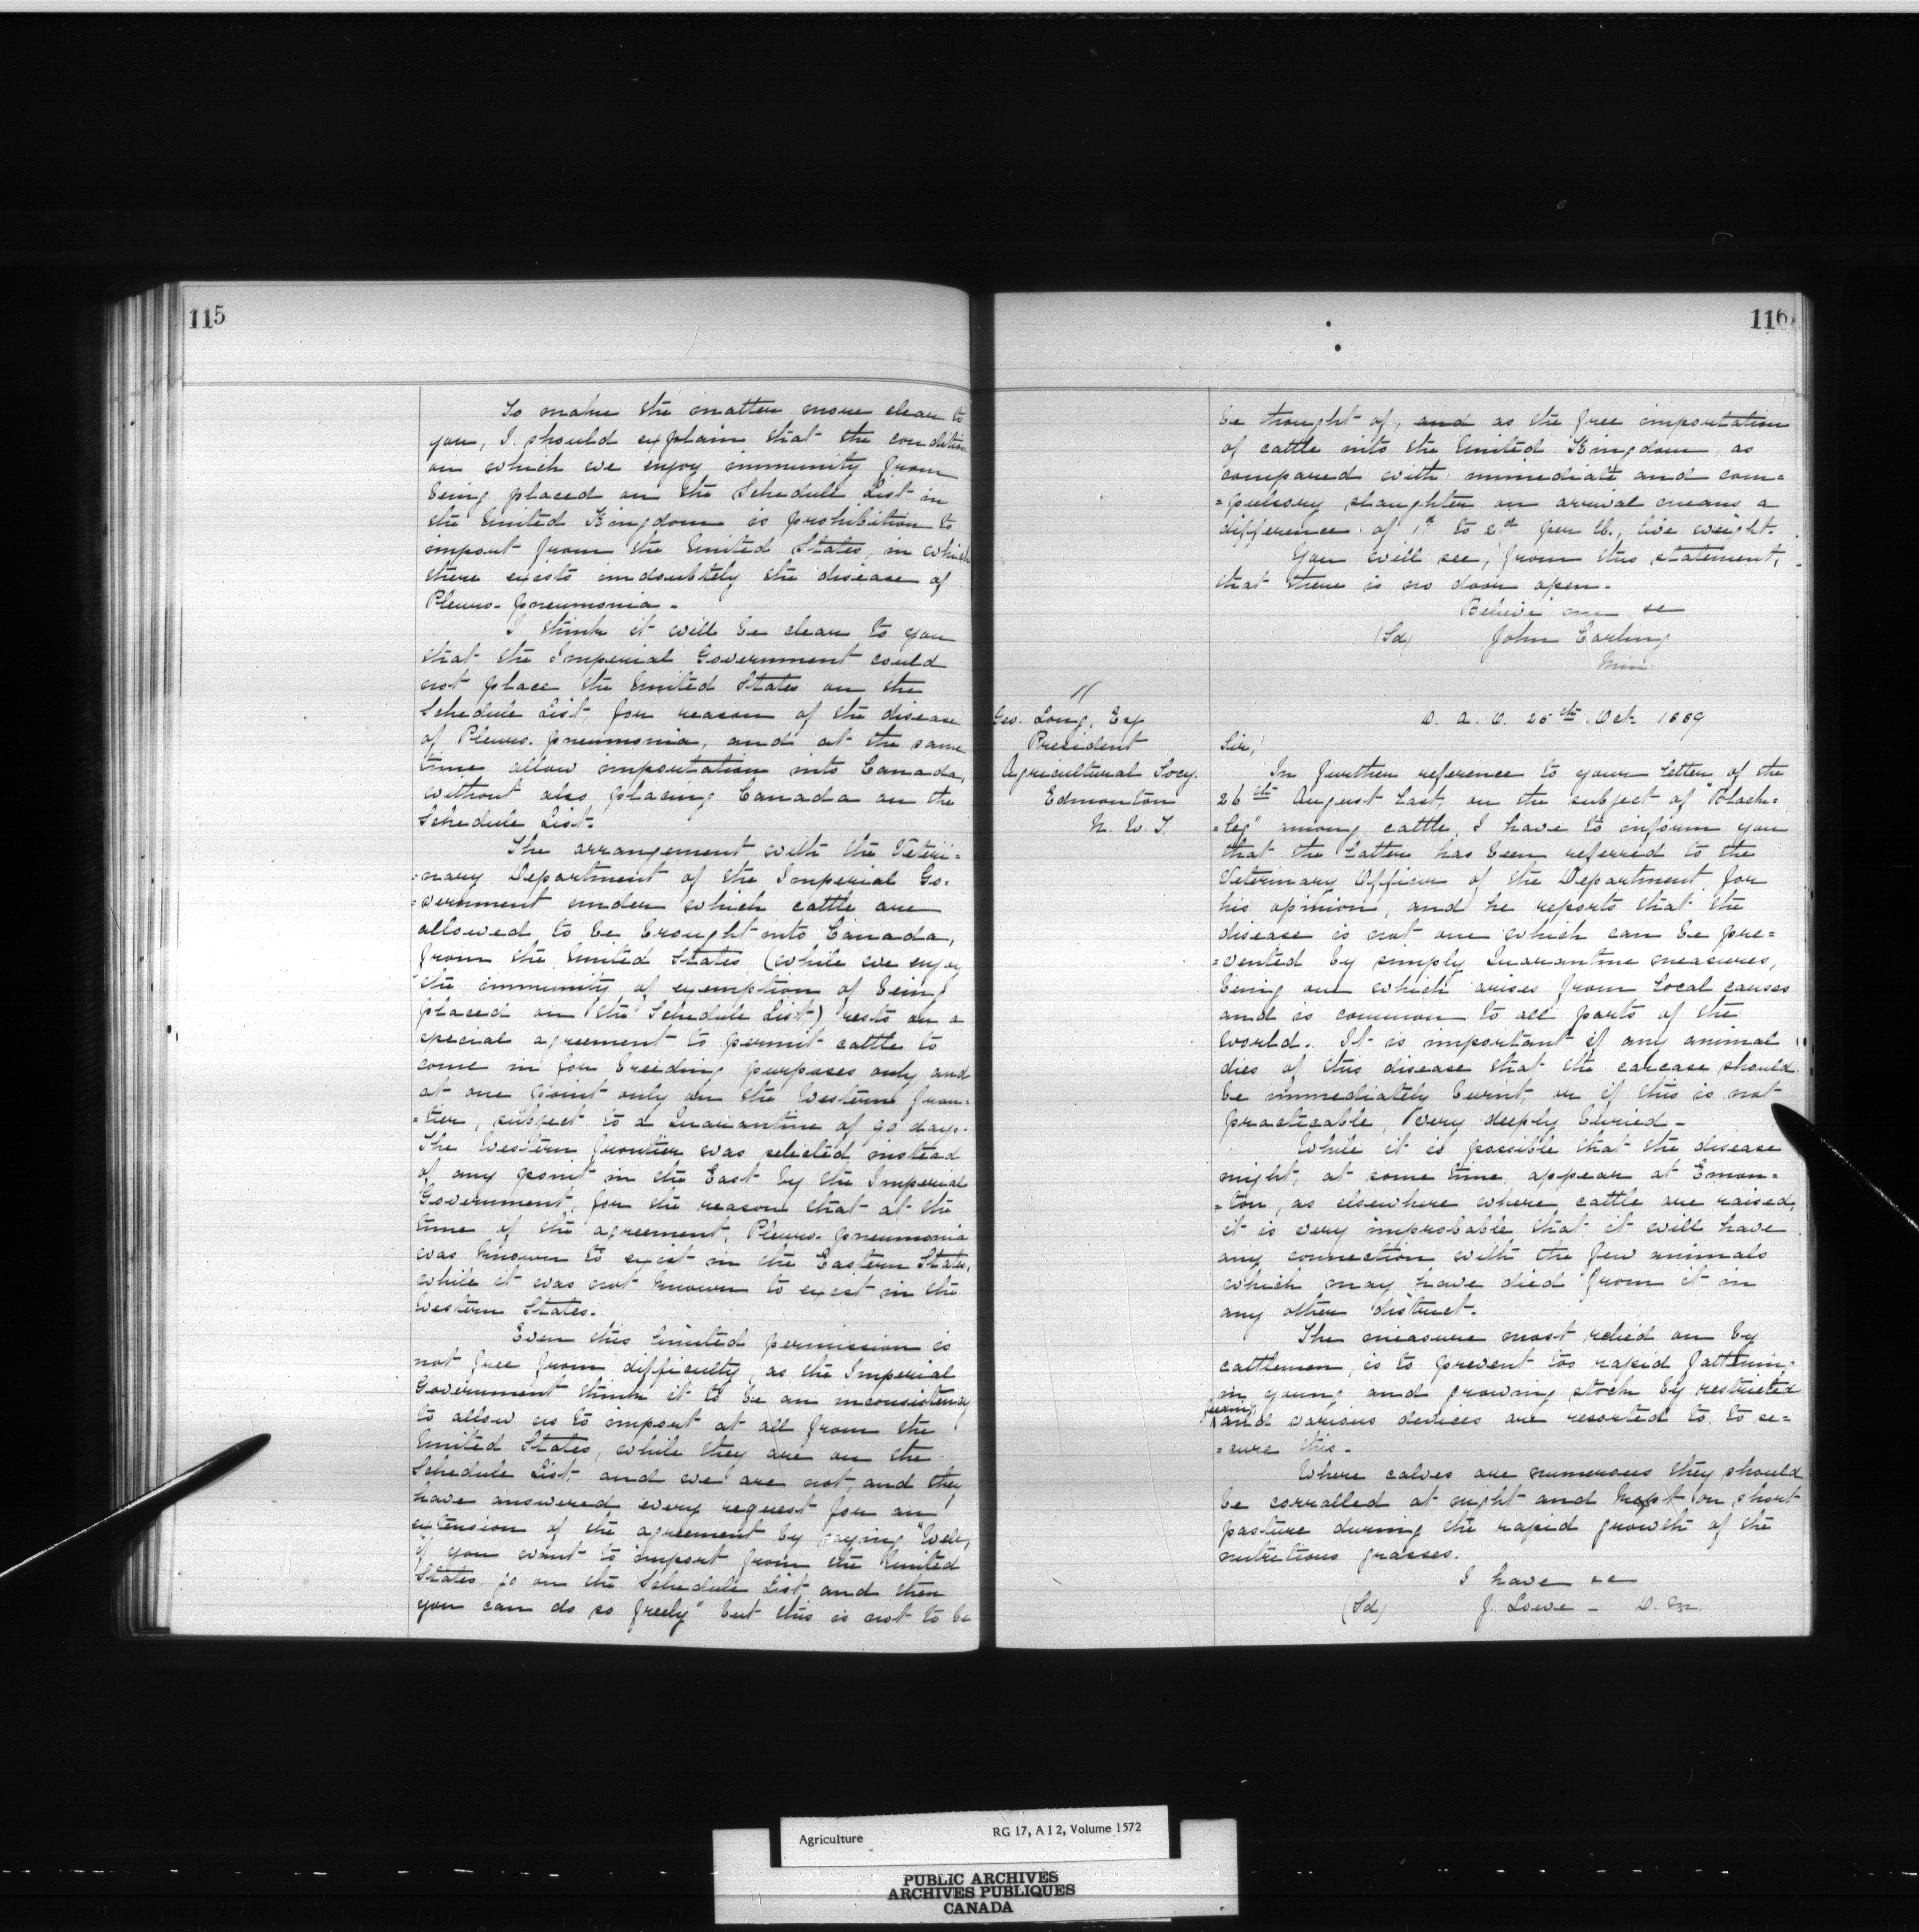 115
To make the matter more clear to
you, I should explain that the condition
on which we enjoy immunity from
being placed on the Schedule List in
the United Kingdom is prohibition to
import from the United States, in which
there exists undoubtely the disease of
Pleuro-pneumonia -
I think it will be clear to you
that the Imperial Government could
not place the United States on the
Schedule List, for reason of the disease
of Pleuro-pneumonia, and at the same
time allow importation into Canada,
without also placing Canada on the
Schedule List.
The arrangement with the Veteri=
=nary Department of the Imperial Go=
=vernment under which cattle are
allowed to be brought into Canada,
from the United States (while we enjoy
the immunity of exemption of being
placed on the Schedule List) rests on a
special agreement to permit cattle to
come in for breeding purposes only and
at one point only on the Western fron=
=tier, subject to a Quarantine of 90 days.
The Western frontier was selected instead
of any point in the East by the Imperial
Government, for the reason that at the
time of the agreement, Pleuro-pneumonia
was known to exist in the Eastern States,
while it was not known to exist in the
Western States.
Even this limited permission is
not free from difficulty, as the Imperial
Government think it to be an inconsistency
to allow us to import at all from the
United States, while they are on the
Schedule List, and we are not, and they
have answered every request for an
extension of the agreement by saying "Well,
if you want to import from the United
States, go on the Schedule List, and then
you can do so freely" but this is not to be
116
be thought of, and as the free importation
of cattle into the United Kingdom, as
compared with immediate and com=
=pulsory slaughter on arrival means a
difference of 1d to 2d per lb., live weight.
You will see, from this statement,
that there is no door open -
Believe me &c
(Sd) John Carling
Min.
Geo. Long, Esq
President
Agricultural Socy.
Edmonton
N. W. T.
D. A. O. 25th Oct. 1889
Sir,
In further reference to your letter of the
26th August last, on the subject of "Black=
=leg" among cattle, I have to inform you
that the latter has been referred to the
Veterinary Officer of the Department for
his opinion, and he reports that the
disease is not one which can be pre=
=vented by simply Quarantine measures,
being one which arises from local causes
and is common to all parts of the
World. It is important if any animal
dies of this disease that the carcase should
be immediately burnt, or if this is not
practicable, very deeply buried -
While it is possible that the disease
might, at some time, appear at Emon=
=ton, as elsewhere where cattle are raised,
it is very improbable that it will have
any connection with the few animals
which may have died from it in
any other district.
The measure most relied on by
cattlemen, is to prevent too rapid fattening
in young and growing stock by restricted
feeding and various devices are resorted to, to se=
=cure this -
Where calves are numerous they should
be corralled at night and kept on short
pasture during the rapid growth of the
nutritious grasses.
I have &c
(Sd) J. Lowe - D. M.
Agriculture RG 17, A I 2, Volume 1572
PUBLIC ARCHIVES
ARCHIVES PUBLIQUES
CANADA